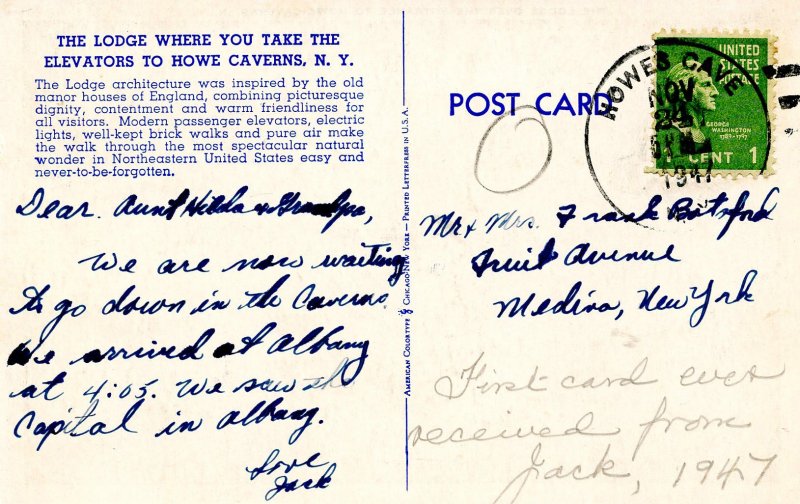 THE LODGE WHERE YOU TAKE THE
ELEVATORS TO HOWE CAVERNS, N. Y.
The Lodge architecture was inspired by the old
manor houses of England, combining picturesque
dignity, contentment and warm friendliness for
all visitors. Modern passenger elevators, electric
lights, well-kept brick walks and pure air make
the walk through the most spectacular natural
wonder in Northeastern United States easy and
never-to-be-forgotten.
Dear Aunt Hilda & Grandpa,
We are now waiting
to go down in the Caverns.
We arrived at Albany
at 4:05. We saw the
Capital in Albany.
Love
Jack
AMERICAN COLORTYPE CHICAGO-NEW YORK — PRINTED LETTERPRESS IN U.S.A.
POST CARD
HOWES CAVE
NOV
1947
UNITED
STATES
POSTAGE
GEORGE
WASHINGTON
1789-1797
1 CENT 1
Mr & Mrs. Frank Botsford
Fruit Avenue
Medina, New York
First card ever
received from
Jack, 1947